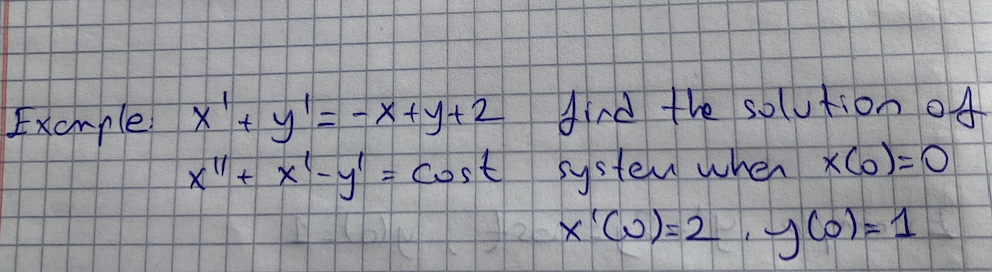 Example: x' + y' = -x+y+2 find the solution of
x'' + x' - y' = cost system when x(0)=0
x'(0)=2, y(0)=1